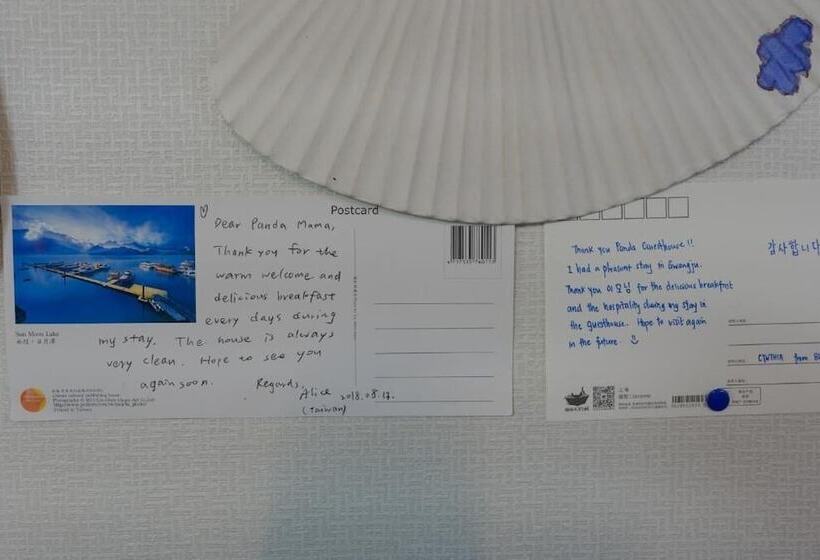 Postcard
Dear Panda Mama,
Thank you for the
warm welcome and
delicious breakfast
every days during
my stay. The house is always
very clean. Hope to see you
again soon. Regards,
Alice 2018.08.17.
(Taiwan)
Sun Moon Lake
Thank you Panda Guesthouse!!
I had a pleasant stay in Gwangju.
Thank you 이모님 for the delicious breakfast
and the hospitality during my stay in
the guesthouse. Hope to visit again
in the future
감사합니다
CYNTHIA from